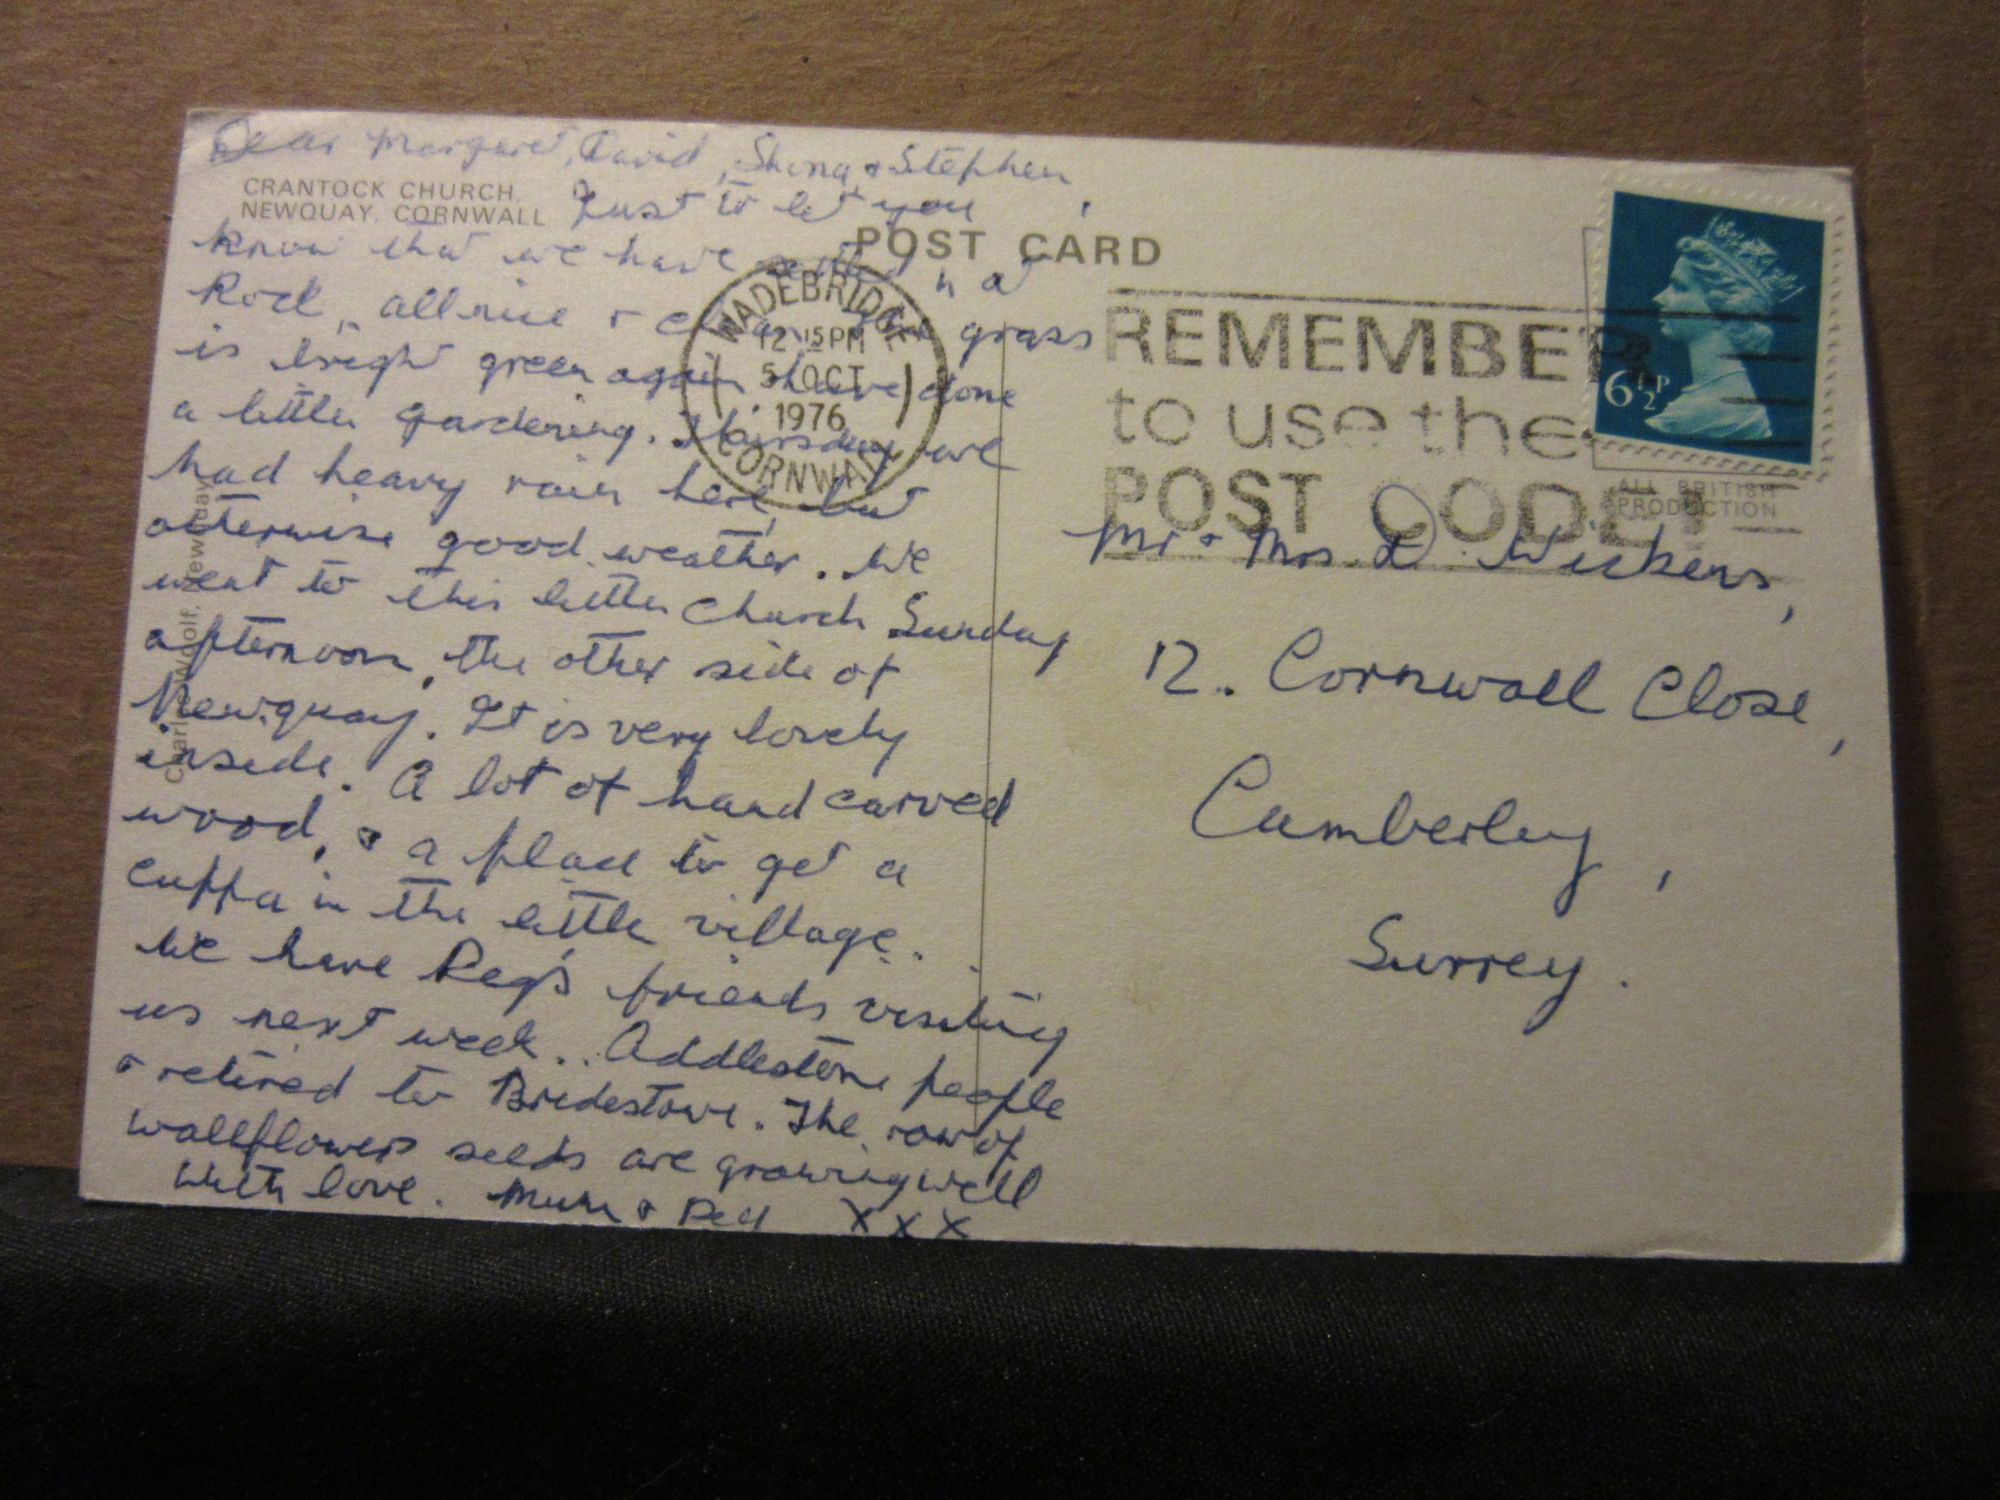 Dear Margaret, David, Shona & Stephen,
CRANTOCK CHURCH,
NEWQUAY, CORNWALL
Just to let you
know that we have settled in at
Rock, all nice & clean. The grass
is bright green again. Have done
a little gardening. Thursday we
had heavy rain here, but
otherwise good weather. We
went to this little church Sunday
afternoon, the other side of
Newquay. It is very lovely
inside. A lot of hand carved
wood, & a place to get a
cuppa in the little village.
We have Reg's friends visiting
us next week.. Addlestone people
& retired to Bridestowe. The row of
wallflowers seeds are growing well
With love. Mum & Reg XXX
Charles Woolf, Newquay
POST CARD
WADEBRIDGE
12 15 PM
5 OCT
1976
CORNWALL
REMEMBER
to use the
POST CODE
6½P
ALL BRITISH
PRODUCTION
Mr & Mrs. D. Wickens,
12. Cornwall Close,
Camberley,
Surrey.